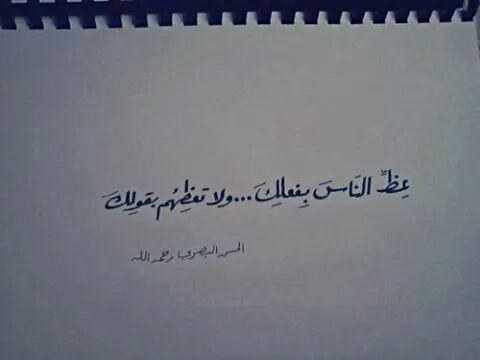 عِظِ النَاسَ بِفعلِكَ...ولا تعظِهُم بقولِكَ
الحسن البصري رحمه الله